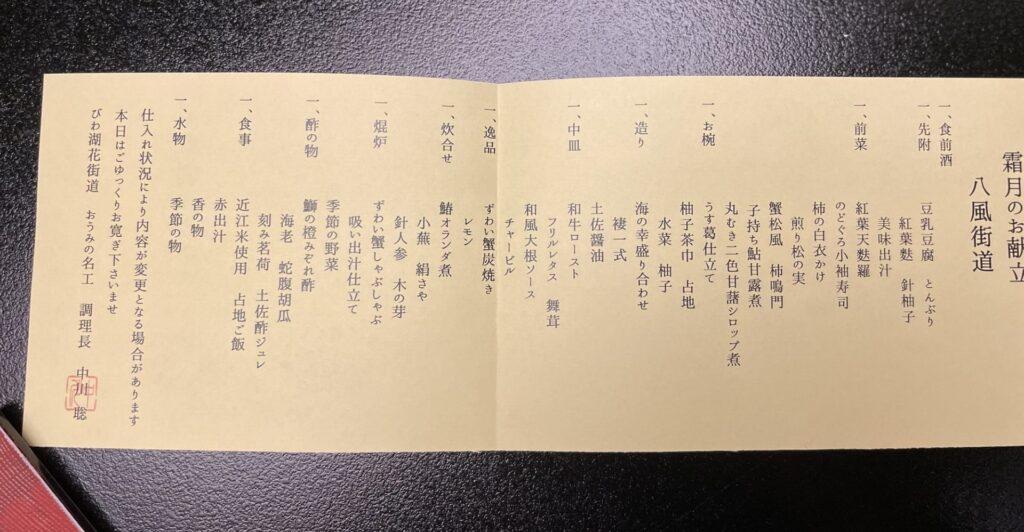 霜月のお献立
八風街道
一、食前酒
一、先附
豆乳豆腐 とんぶり
紅葉麩 針柚子
美味出汁
一、前菜
紅葉天麩羅
のどぐろ小袖寿司
柿の白衣かけ
煎り松の実
蟹松風 柿鳴門
子持ち鮎甘露煮
丸むき二色甘藷シロップ煮
一、お椀
うす葛仕立て
柚子茶巾 占地
水菜 柚子
一、造り
海の幸盛り合わせ
褄一式
土佐醤油
一、中皿
和牛ロースト
フリルレタス 舞茸
和風大根ソース
チャービル
一、逸品
ずわい蟹炭焼き
レモン
一、炊合せ
鰆オランダ煮
小蕪 絹さや
針人参 木の芽
一、焜炉
ずわい蟹しゃぶしゃぶ
吸い出汁仕立て
季節の野菜
一、酢の物
鰤の橙みぞれ酢
海老 蛇腹胡瓜
刻み茗荷 土佐酢ジュレ
一、食事
近江米使用 占地ご飯
赤出汁
香の物
一、水物
季節の物
仕入れ状況により内容が変更となる場合があります
本日はごゆっくりお寛ぎ下さいませ
びわ湖花街道 おうみの名工 調理長 中川 聡